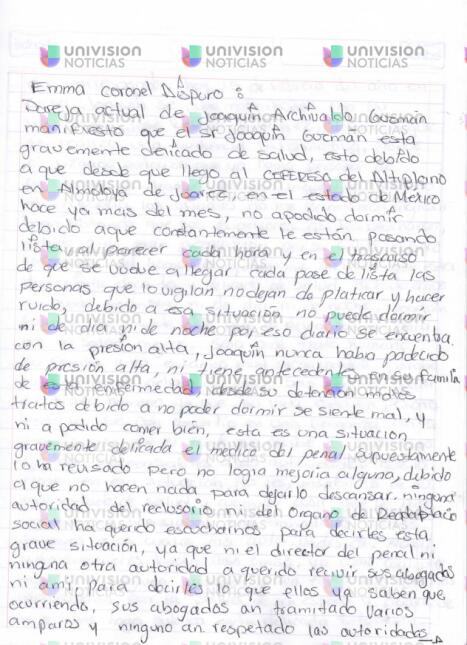 Emma coronel Aispuro :
Pareja actual de Joaquin Archivaldo Guzmán
manifiesto que el sr Joaquin Guzmán esta
gravemente delicado de salud, esto debido
a que desde que llego al CEFERESO del Altiplano
en Almoloya de Juarez, en el estado de Mexico
hace ya mas del mes, no apodido dormir
debido aque constantemente le estón pasando
lista, al parecer cada hora y en el trascurso
de que se vuelve a llegar cada pase de lista las
personas que lo vigilan no dejan de platicar y hacer
ruido, debido a esa situación no puede dormir
ni de dia ni de noche por eso diario se encuentra
con la presión alta, Joaquin nunca habia padecido
de presión alta, ni tiene antecedentes en su familia
de esa enfermedad desde su detención malos
tratos debido a no poder dormir se siente mal, y
ni a podido comer bien, esta es una situación
gravemente delicada el medico del penal supuestamente
lo ha revisado pero no logra mejoria alguna, debido
a que no hacen nada para dejarlo descansar. ninguna
autoridad del reclusorio ni del Organo de
social ha querido escucharnos para decirles esta
grave situación, ya que ni el director del penal ni
ninguna otra autoridad a querido recivir sus abogados
ni a mi para decirles lo que ellos ya saben que
ocurriendo, sus abogados an tramitado varios
amparos y ninguno an respetado las autoridades
UNIVISION NOTICIAS